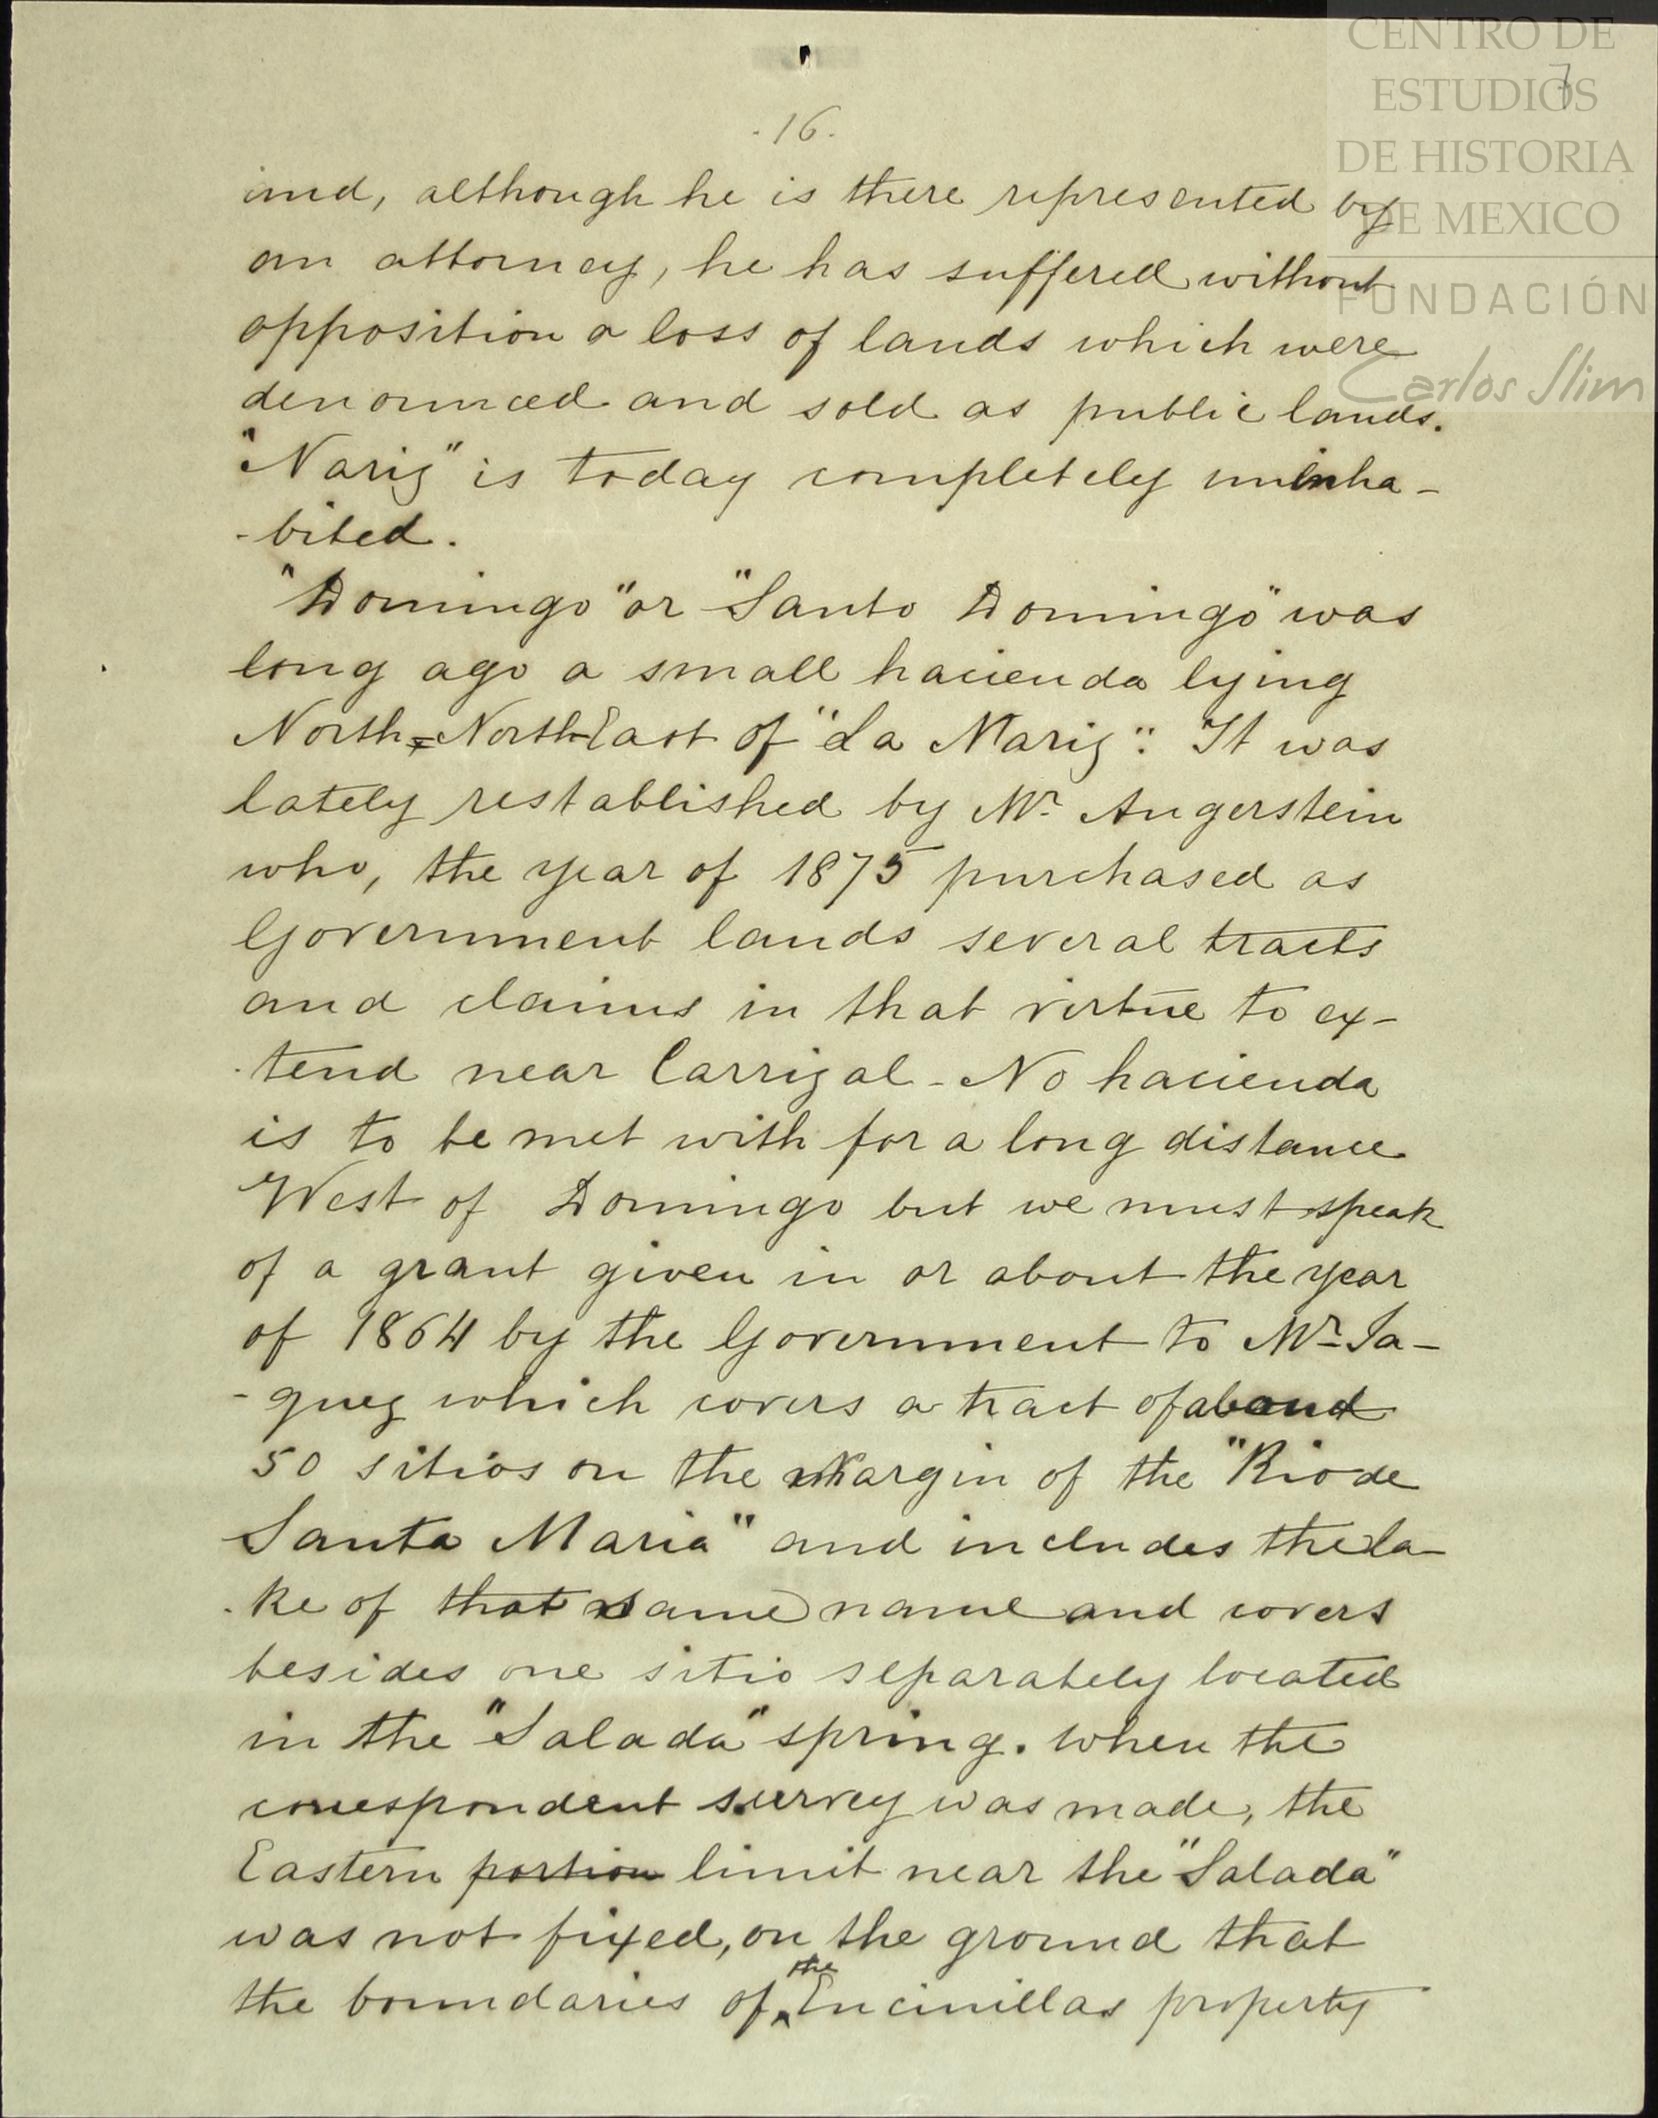 CENTRO DE
ESTUDIOS
DE HISTORIA
DE MEXICO
FUNDACIÓN
Carlos Slim
7
.16.
and, although he is there represented by
an attorney, he has suffered without
opposition a loss of lands which were
denounced and sold as public lands.
"Nariz" is today completely uninha-
-bited.
"Domingo" or "Santo Domingo" was
long ago a small hacienda lying
North-NorthEast of "La Nariz". It was
lately restablished by Mr. Angerstein
who, the year of 1875 purchased as
Government lands several tracts
and claims in that virtue to ex-
-tend near Carrizal - No hacienda
is to be met with for a long distance
West of Domingo but we must speak
of a grant given in or about the year
of 1864 by the Government to Mr. Ja-
-quez which covers a tract of
50 sitios on the Margin of the "Rio de
Santa Maria" and includes the La-
-ke of that same name and covers
besides one sitio separately located
in the "Salada" spring. When the
correspondent survey was made, the
Eastern portion limit near the "Salada"
was not fixed, on the ground that
the boundaries of the Encinillas property